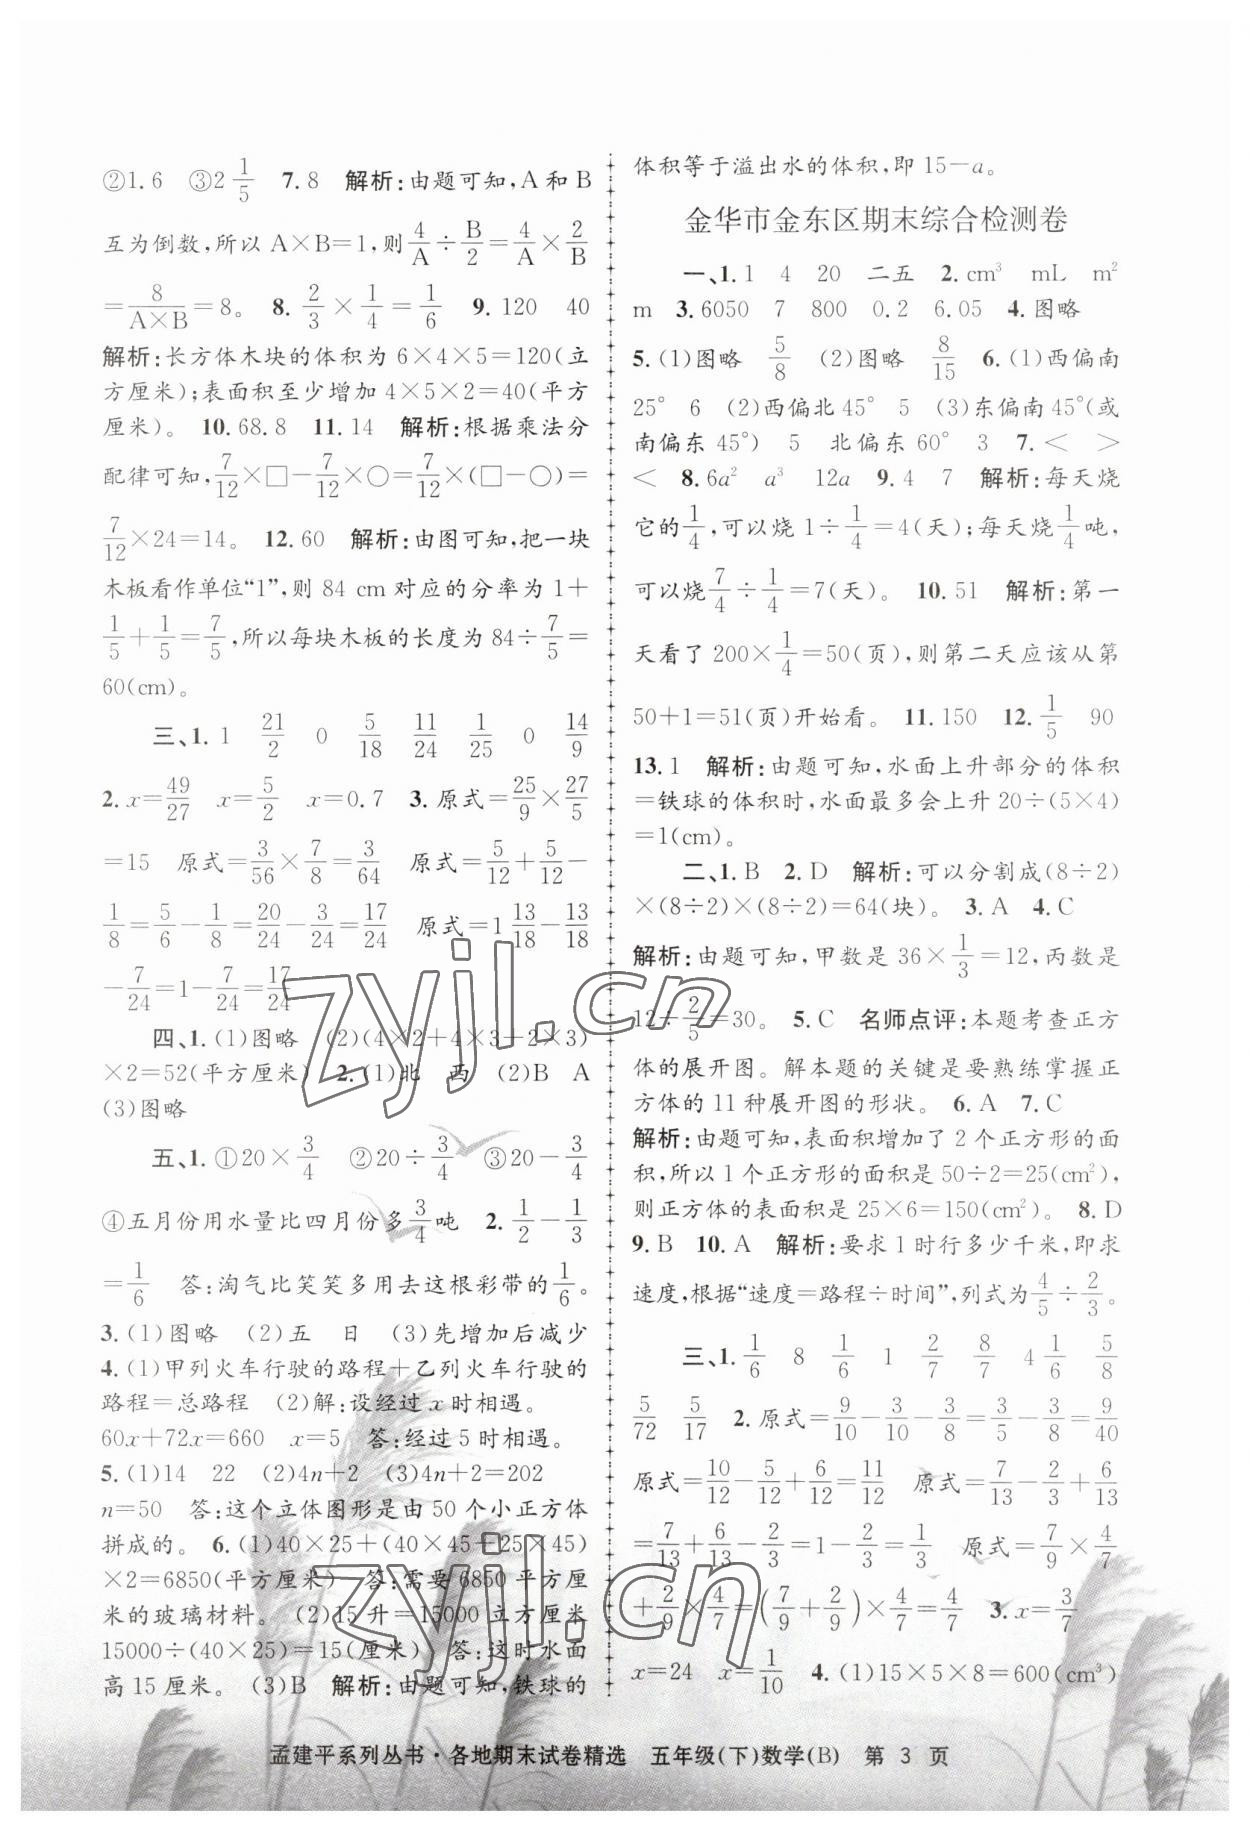 ②1.6 ③2 1/5 7.8 解析:由题可知,A和B
互为倒数,所以A×B=1,则 4/A ÷ B/2 = 4/A × 2/B
= 8/(A×B) =8。 8. 2/3 × 1/4 = 1/6 9.120 40
解析:长方体木块的体积为6×4×5=120(立
方厘米);表面积至少增加4×5×2=40(平方
厘米)。 10.68.8 11.14 解析:根据乘法分
配律可知, 7/12 ×□− 7/12 ×○= 7/12 ×(□−○)=
7/12 ×24=14。 12.60 解析:由图可知,把一块
木板看作单位“1”,则84 cm对应的分率为1+
1/5 + 1/5 = 7/5 ,所以每块木板的长度为84÷ 7/5 =
60(cm)。
三、1.1 21/2 0 5/18 11/24 1/25 0 14/9
2.x= 49/27 x= 5/2 x=0.7 3.原式= 25/9 × 27/5
=15 原式= 3/56 × 7/8 = 3/64 原式= 5/12 + 5/12 −
1/8 = 5/6 − 1/8 = 20/24 − 3/24 = 17/24 原式=1 13/18 − 13/18
− 7/24 =1− 7/24 = 17/24
四、1.(1)图略 (2)(4×2+4×3+2×3)
×2=52(平方厘米) 2.(1)北 西 (2)B A
(3)图略
五、1.①20× 3/4 ②20÷ 3/4 ③20− 3/4
④五月份用水量比四月份多 3/4 吨 2. 1/2 − 1/3
= 1/6 答:淘气比笑笑多用去这根彩带的 1/6 。
3.(1)图略 (2)五 日 (3)先增加后减少
4.(1)甲列火车行驶的路程+乙列火车行驶的
路程=总路程 (2)解:设经过x时相遇。
60x+72x=660 x=5 答:经过5时相遇。
5.(1)14 22 (2)4n+2 (3)4n+2=202
n=50 答:这个立体图形是由50个小正方体
拼成的。 6.(1)40×25+(40×45+25×45)
×2=6850(平方厘米) 答:需要6850平方厘
米的玻璃材料。 (2)15升=15000立方厘米
15000÷(40×25)=15(厘米) 答:这时水面
高15厘米。 (3)B 解析:由题可知,铁球的
体积等于溢出水的体积,即15−a。
金华市金东区期末综合检测卷
一、1.1 4 20 二五 2.cm³ mL m²
m 3.6050 7 800 0.2 6.05 4.图略
5.(1)图略 5/8 (2)图略 8/15 6.(1)西偏南
25° 6 (2)西偏北45° 5 (3)东偏南45°(或
南偏东45°) 5 北偏东60° 3 7.< >
< 8.6a² a³ 12a 9.4 7 解析:每天烧
它的 1/4 ,可以烧1÷ 1/4 =4(天);每天烧 1/4 吨,
可以烧 7/4 ÷ 1/4 =7(天)。 10.51 解析:第一
天看了200× 1/4 =50(页),则第二天应该从第
50+1=51(页)开始看。 11.150 12. 1/5 90
13.1 解析:由题可知,水面上升部分的体积
=铁球的体积时,水面最多会上升20÷(5×4)
=1(cm)。
二、1.B 2.D 解析:可以分割成(8÷2)
×(8÷2)×(8÷2)=64(块)。 3.A 4.C
解析:由题可知,甲数是36× 1/3 =12,丙数是
12÷ 2/5 =30。 5.C 名师点评:本题考查正方
体的展开图。解本题的关键是要熟练掌握正
方体的11种展开图的形状。 6.A 7.C
解析:由题可知,表面积增加了2个正方形的面
积,所以1个正方形的面积是50÷2=25(cm²),
则正方体的表面积是25×6=150(cm²)。 8.D
9.B 10.A 解析:要求1时行多少千米,即求
速度,根据“速度=路程÷时间”,列式为 4/5 ÷ 2/3 。
三、1. 1/6 8 1/6 1 2/7 8/7 4 1/6 5/8
5/72 5/17 2.原式= 9/10 − 3/10 − 3/8 = 3/5 − 3/8 = 9/40
原式= 10/12 − 5/12 + 6/12 = 11/12 原式= 7/13 − 2/3 + 6/13
= 7/13 + 6/13 − 2/3 =1− 2/3 = 1/3 原式= 7/9 × 4/7
+ 2/9 × 4/7 =( 7/9 + 2/9 )× 4/7 = 4/7 3.x= 3/7
x=24 x= 1/10 4.(1)15×5×8=600(cm³)
孟建平系列丛书·各地期末试卷精选 五年级(下)数学(B) 第 3 页
zyjl.cn
zyjl.cn